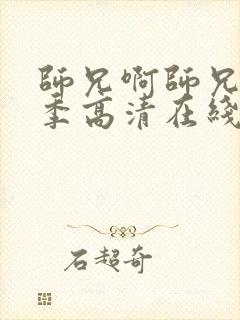 師兄啊師兄
季高清在綫
石超奇